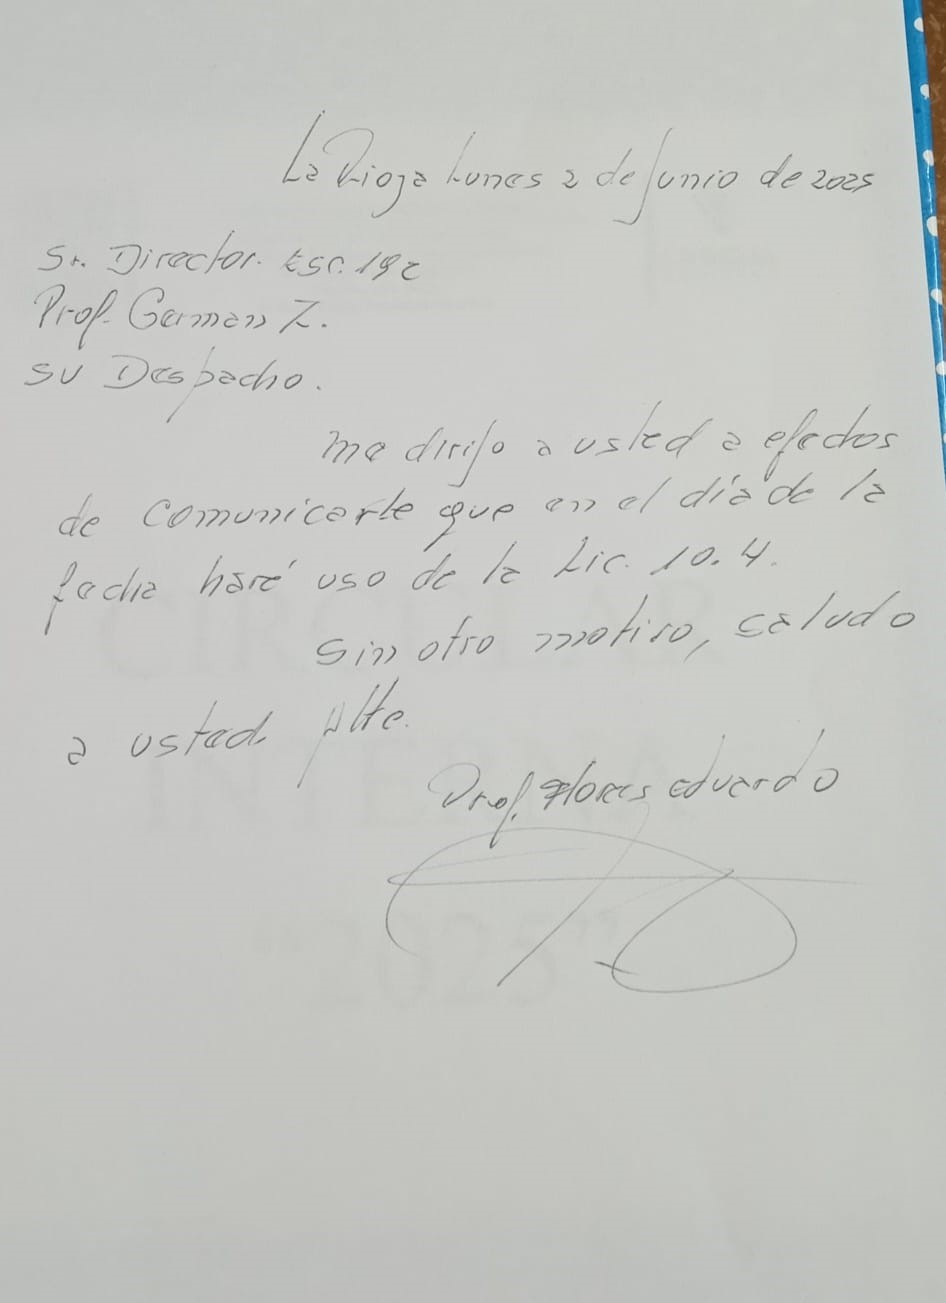 La Rioja Lunes 2 de Junio de 2025
Sr. Director. Esc. 192
Prof. German Z.
su Despacho.
me dirijo a usted a efectos
de comunicarle que en el día de la
fecha haré uso de la Lic. 10.4.
sin otro motivo, saludo
a usted Atte.
Prof. Flores Eduardo
CIRCULAR
INTERNA
"2025"